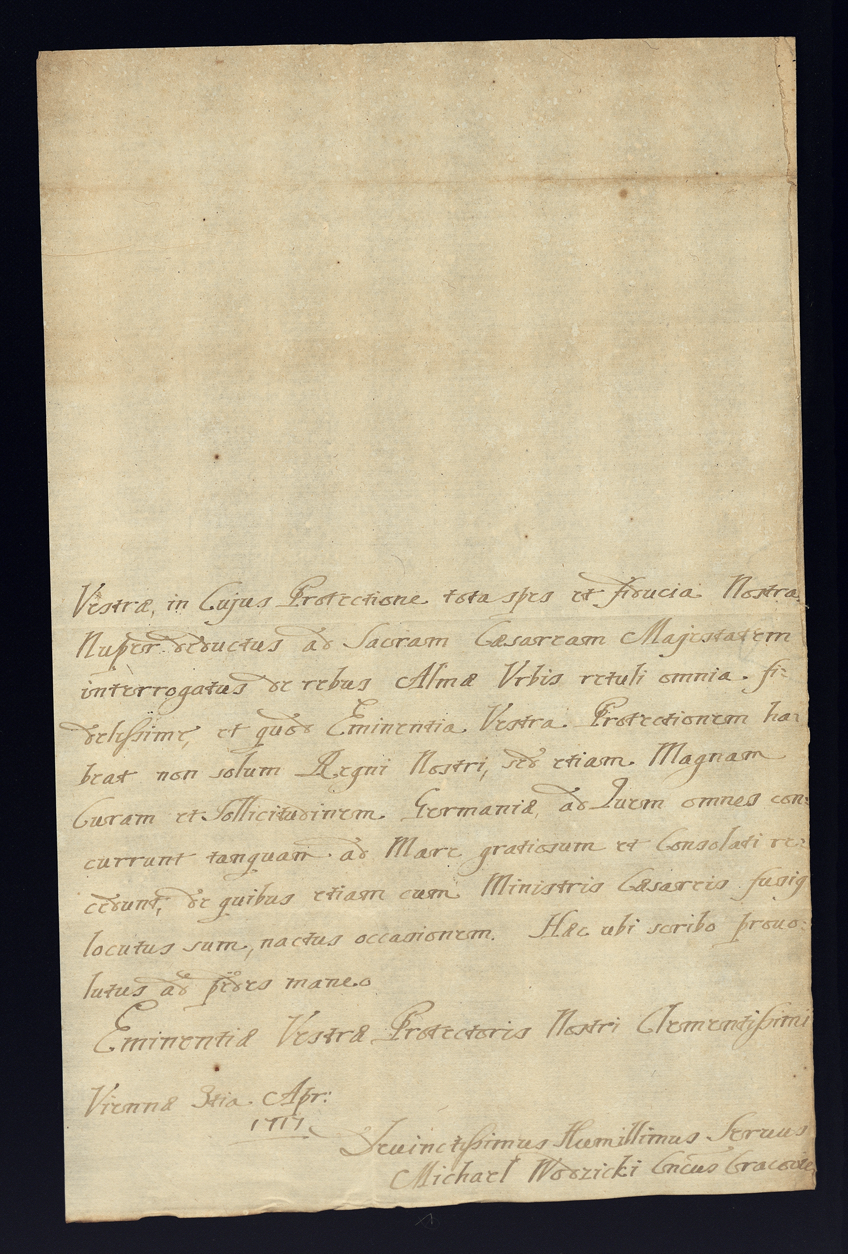 Vestræ, in Cujus Protectione tota spes et fiducia Nostra
Nuper deductus ad Sacram Cæsaream Majestatem
interrogatus de rebus Almæ Urbis retuli omnia fi-
delissime, et quod Eminentia Vestra Protectionem ha-
beat non solum Regni Nostri, sed etiam Magnam
Curam et Sollicitudinem Germaniæ, ad Quem omnes con-
currunt tanquam ad Mare gratiosum et Consolati re-
cedunt, de quibus etiam cum Ministris Cæsareis fusiq
locutus sum, nactus occasionem. Hæc ubi scribo provo-
lutus ad pedes maneo
Eminentiæ Vestræ Protectoris Nostri Clementissimi
Viennæ 3tia Apr:
1717
Devinctissimus Humillimus Servus
Michael Wodzicki Cncus